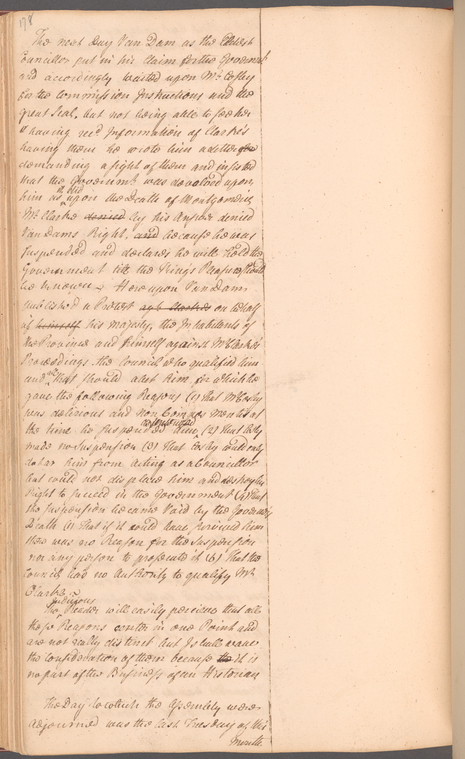 178
The next Day Van Dam as the Eldest
Councillor put in his Claim for the Governmt
and accordingly waited upon Mrs Cosby
for the Commission Instructions and the
great Seal, but not being able to see her
& having recd Information of Clarke's
having them he wrote him a letter
demanding a sight of them and insisted
that the Governmt was devolved upon
him as it did upon the Death of Montgomerie
Mr Clarke denied by his Answer denied
Van Dams Right, and because he was
suspended and declares he will hold the
Government till the Kings Pleasure should
be known. Hereupon Van Dam
published a Protest on behalf
of himself his Majesty, the Inhabitants of
the Province and himself against Mr Clarke's
Proceedings, the Council who qualified him
and all that should abet him, for which he
gave the following Reasons (1) that Mr Cosby
was delirious and non Compos mentis at
the time he suspended him, (2) that Cosby
made no Suspension (3) that Cosby could only
debar him from acting as a Councillor
but could not displace him and destroy his
Right to succeed in the Government (4) that
the Suspension became Void by the Governors
Death (5) that if it could have survived him
there was no Reason for the Suspension
nor any person to prosecute it (6) that the
Council had no Authority to qualify Mr
Clarke
The judicious Reader will easily perceive that all
these Reasons center in one Point and
are not really distinct but I shall wave
the Consideration of them because it is
no part of the Business of an Historian
The Day to which the Assembly were
adjourned was the last Tuesday of this
Month